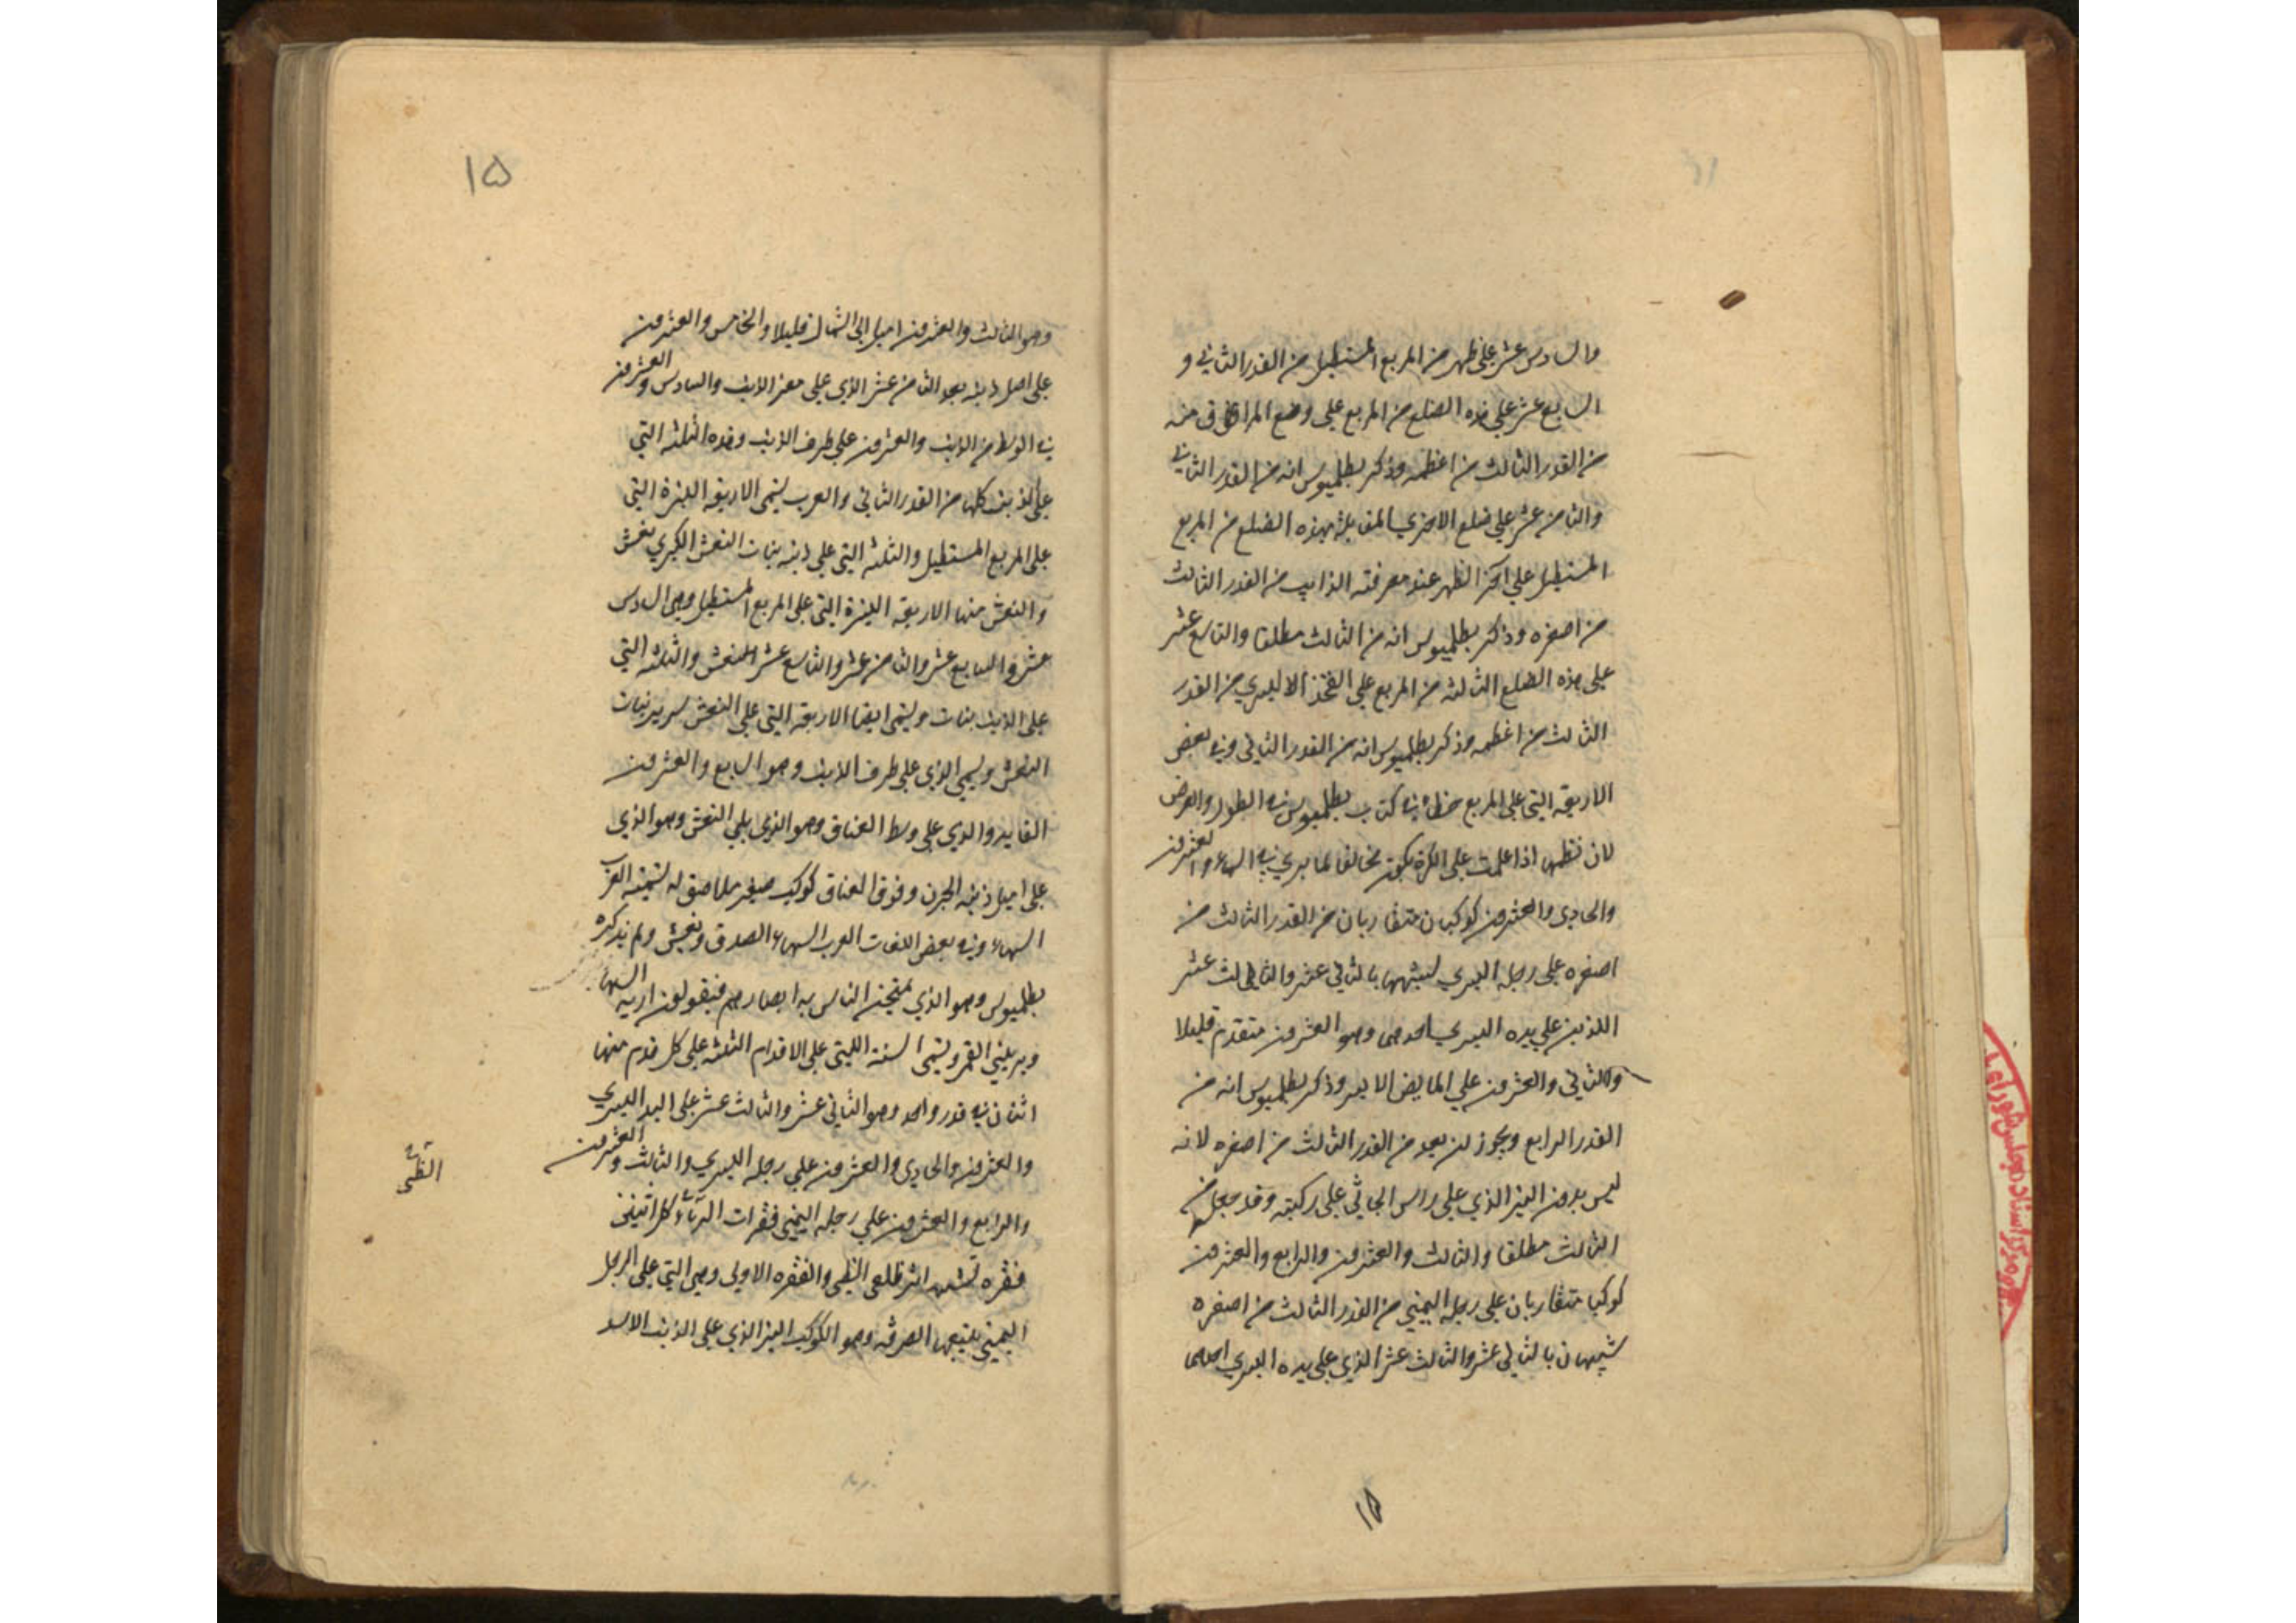 والسادس عشر علي ظهر من المربع المستطيل من القدر الثاني و
السابع عشر علي هذه الضلع من المربع علي وضع المراق في منه
من القدر الثالث من اعظمه وذكر بطلميوس انه من القدر الثاني
والثامن عشر علي ضلع الاخري المقابلة بهذه الضلع من المربع
المستطيل علي اخر الظهر عند معرفته الذانب من القدر الثالث
من اصغره وذكر بطلميوس انه من الثالث مطلقا والتاسع عشر
علي هذه الضلع الثالثة من المربع علي الفخذ الاليسري من القدر
الثالث من اعظمه وذكر بطلميوس انه من القدر الثاني وفي بعض
الاربعة التي علي المربع خطاء في كتاب بطلميوس في الطول والعرض
لان نظمها اذا علمت علي الكرة يكون مخالفا لما يري في السماء والعشرون
والحادي والعشرون كوكبان متقاربان من القدر الثالث من
اصغره علي رجله اليسري لشبهها بالثاني عشر والثالث عشر
اللذين علي يده اليسري احدهما وهو العشرون متقدم قليلا
والثاني والعشرون علي المابض الايسر وذكر بطلميوس انه من
القدر الرابع ويجوز ان يعد من القدر الثالث من اصغره لانه
ليس بدون النير الذي علي راس الجاثي علي ركبته وقد جعله من
الثالث مطلقا والثالث والعشرون والرابع والعشرون
كوكبا متقاربان علي رجله اليمني من القدر الثالث من اصغره
شبيهان بالثاني عشر والثالث عشر الذي علي يده اليسري احدهما
١۵
١۵
وهو الثالث والعشرون اميل الي الشمال قليلا والخامس والعشرون
علي اصل ذنبه بعد الثامن عشر الذي علي مغرز الذنب والسادس والعشرون
في الوسط من الذنب والعشرون علي طرف الذنب وهذه الثلثة التي
علي الذنب كلها من القدر الثاني والعرب يسمي الاربعة النيرة التي
علي المربع المستطيل والثلثة التي علي ذنبه بنات النعش الكبري نعش
والنعش منها الاربعة النيرة التي علي المربع المستطيل وهي السادس
عشر والسابع عشر والثامن عشر والتاسع عشر النعش والثلثة التي
علي الذنب بنات ويسمي ايضا الاربعة التي علي النعش سرير بنات
النعش ويسمي الذي علي طرف الذنب وهو السابع والعشرون
القايد والذي علي وسط العناق وهو الذي يلي النعش وهو الذي
علي اصل ذنبه الجون وفوق العناق كوكب صغير ملاصق له تسميه العرب
السهاء وفي بعض اللغات العرب السهاء الصدق ونعش ولم يذكره
بطلميوس وهو الذي يمتحن الناس به ابصارهم فيقولون اريه السها
ويريني القمر ويسمي الستة التي علي الاقدام الثلثة علي كل قدم منها
اثنان في قدر واحد وهو الثاني عشر والثالث عشر علي اليد اليسري
والعشرون والحادي والعشرون علي رجله اليسري والثالث والعشرون
والرابع والعشرون علي رجله اليمني فقرات الظباء كل اثنين
فقره تشبه اثر ظلفي الظبي والفقره الاولي وهي التي علي الرجل
اليمني يتبعها الصرفة وهو الكوكب النير الذي علي الذنب الاسد
الظبي